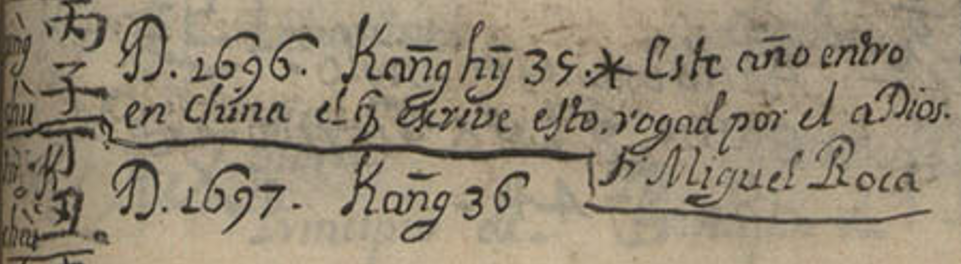 丙子
D. 1696. Kañg hȳ 35. * Este año entro
en China el q̃ escrive esto. rogad por el a Dios.
Fr Miguel Roca
丁丑
D. 1697. Kañg 36